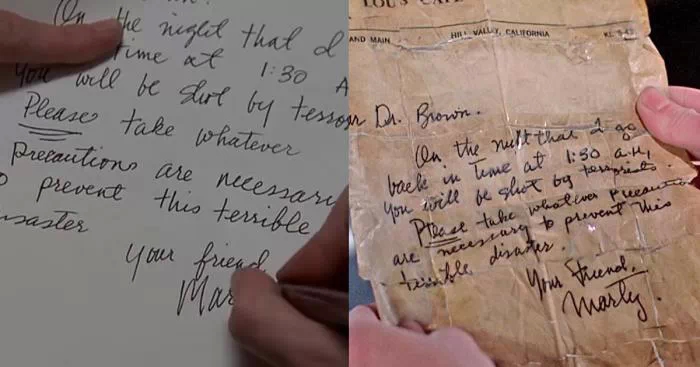 On the night that I
time at 1:30 A
you will be shot by terror
Please take whatever
precautions are necessary
prevent this terrible
disaster
Your friend
Mar
LOU'S CAFE
AND MAIN HILL VALLEY, CALIFORNIA
Dr. Brown.
On the night that I go
back in time at 1:30 A.M,
you will be shot by terrorists.
Please take whatever precautions
are necessary to prevent this
terrible disaster.
Your friend,
Marty.